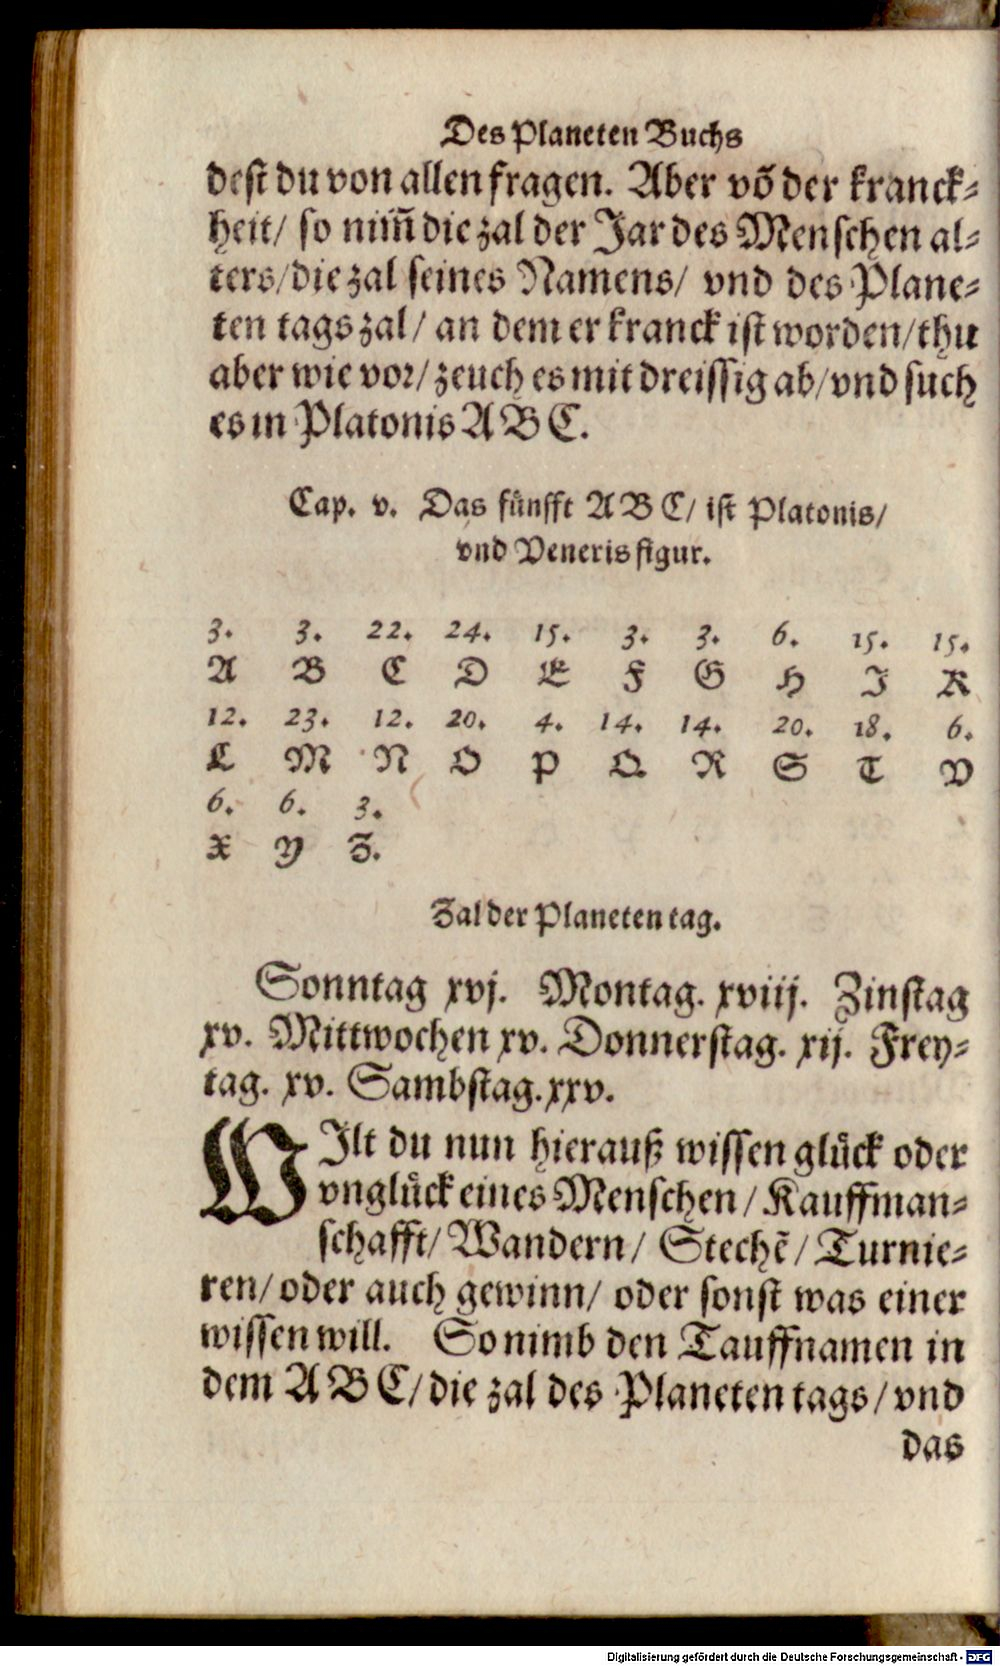 Des Planeten Buchs
dest du von allen fragen. Aber võ der kranck⸗
heit/ so nim̃ die zal der Jar des Menschen al⸗
ters/die zal seines Namens/ vnd des Plane⸗
ten tags zal/ an dem er kranck ist worden/thu
aber wie vor/ zeuch es mit dreissig ab/vnd such
es in Platonis A B C.
Cap. v. Das fünfft A B C/ ist Platonis/
vnd Veneris figur.
3. 3. 22. 24. 15. 3. 3. 6. 15. 15.
A B C D E F G H J K
12. 23. 12. 20. 4. 14. 14. 20. 18. 6.
L M N O P Q R S T V
6. 6. 3.
X Y Z.
Zal der Planeten tag.
Sonntag xvj. Montag. xviij. Zinstag
xv. Mittwochen xv. Donnerstag. xij. Frey⸗
tag. xv. Sambstag. xxv.
WIlt du nun hierauß wissen glück oder
vnglück eines Menschen/ Kauffman⸗
schafft/ Wandern/ Stechẽ/ Turnie⸗
ren/ oder auch gewinn/ oder sonst was einer
wissen will. So nimb den Tauffnamen in
dem A B C/ die zal des Planeten tags/ vnd
das
Digitalisierung gefördert durch die Deutsche Forschungsgemeinschaft - DFG